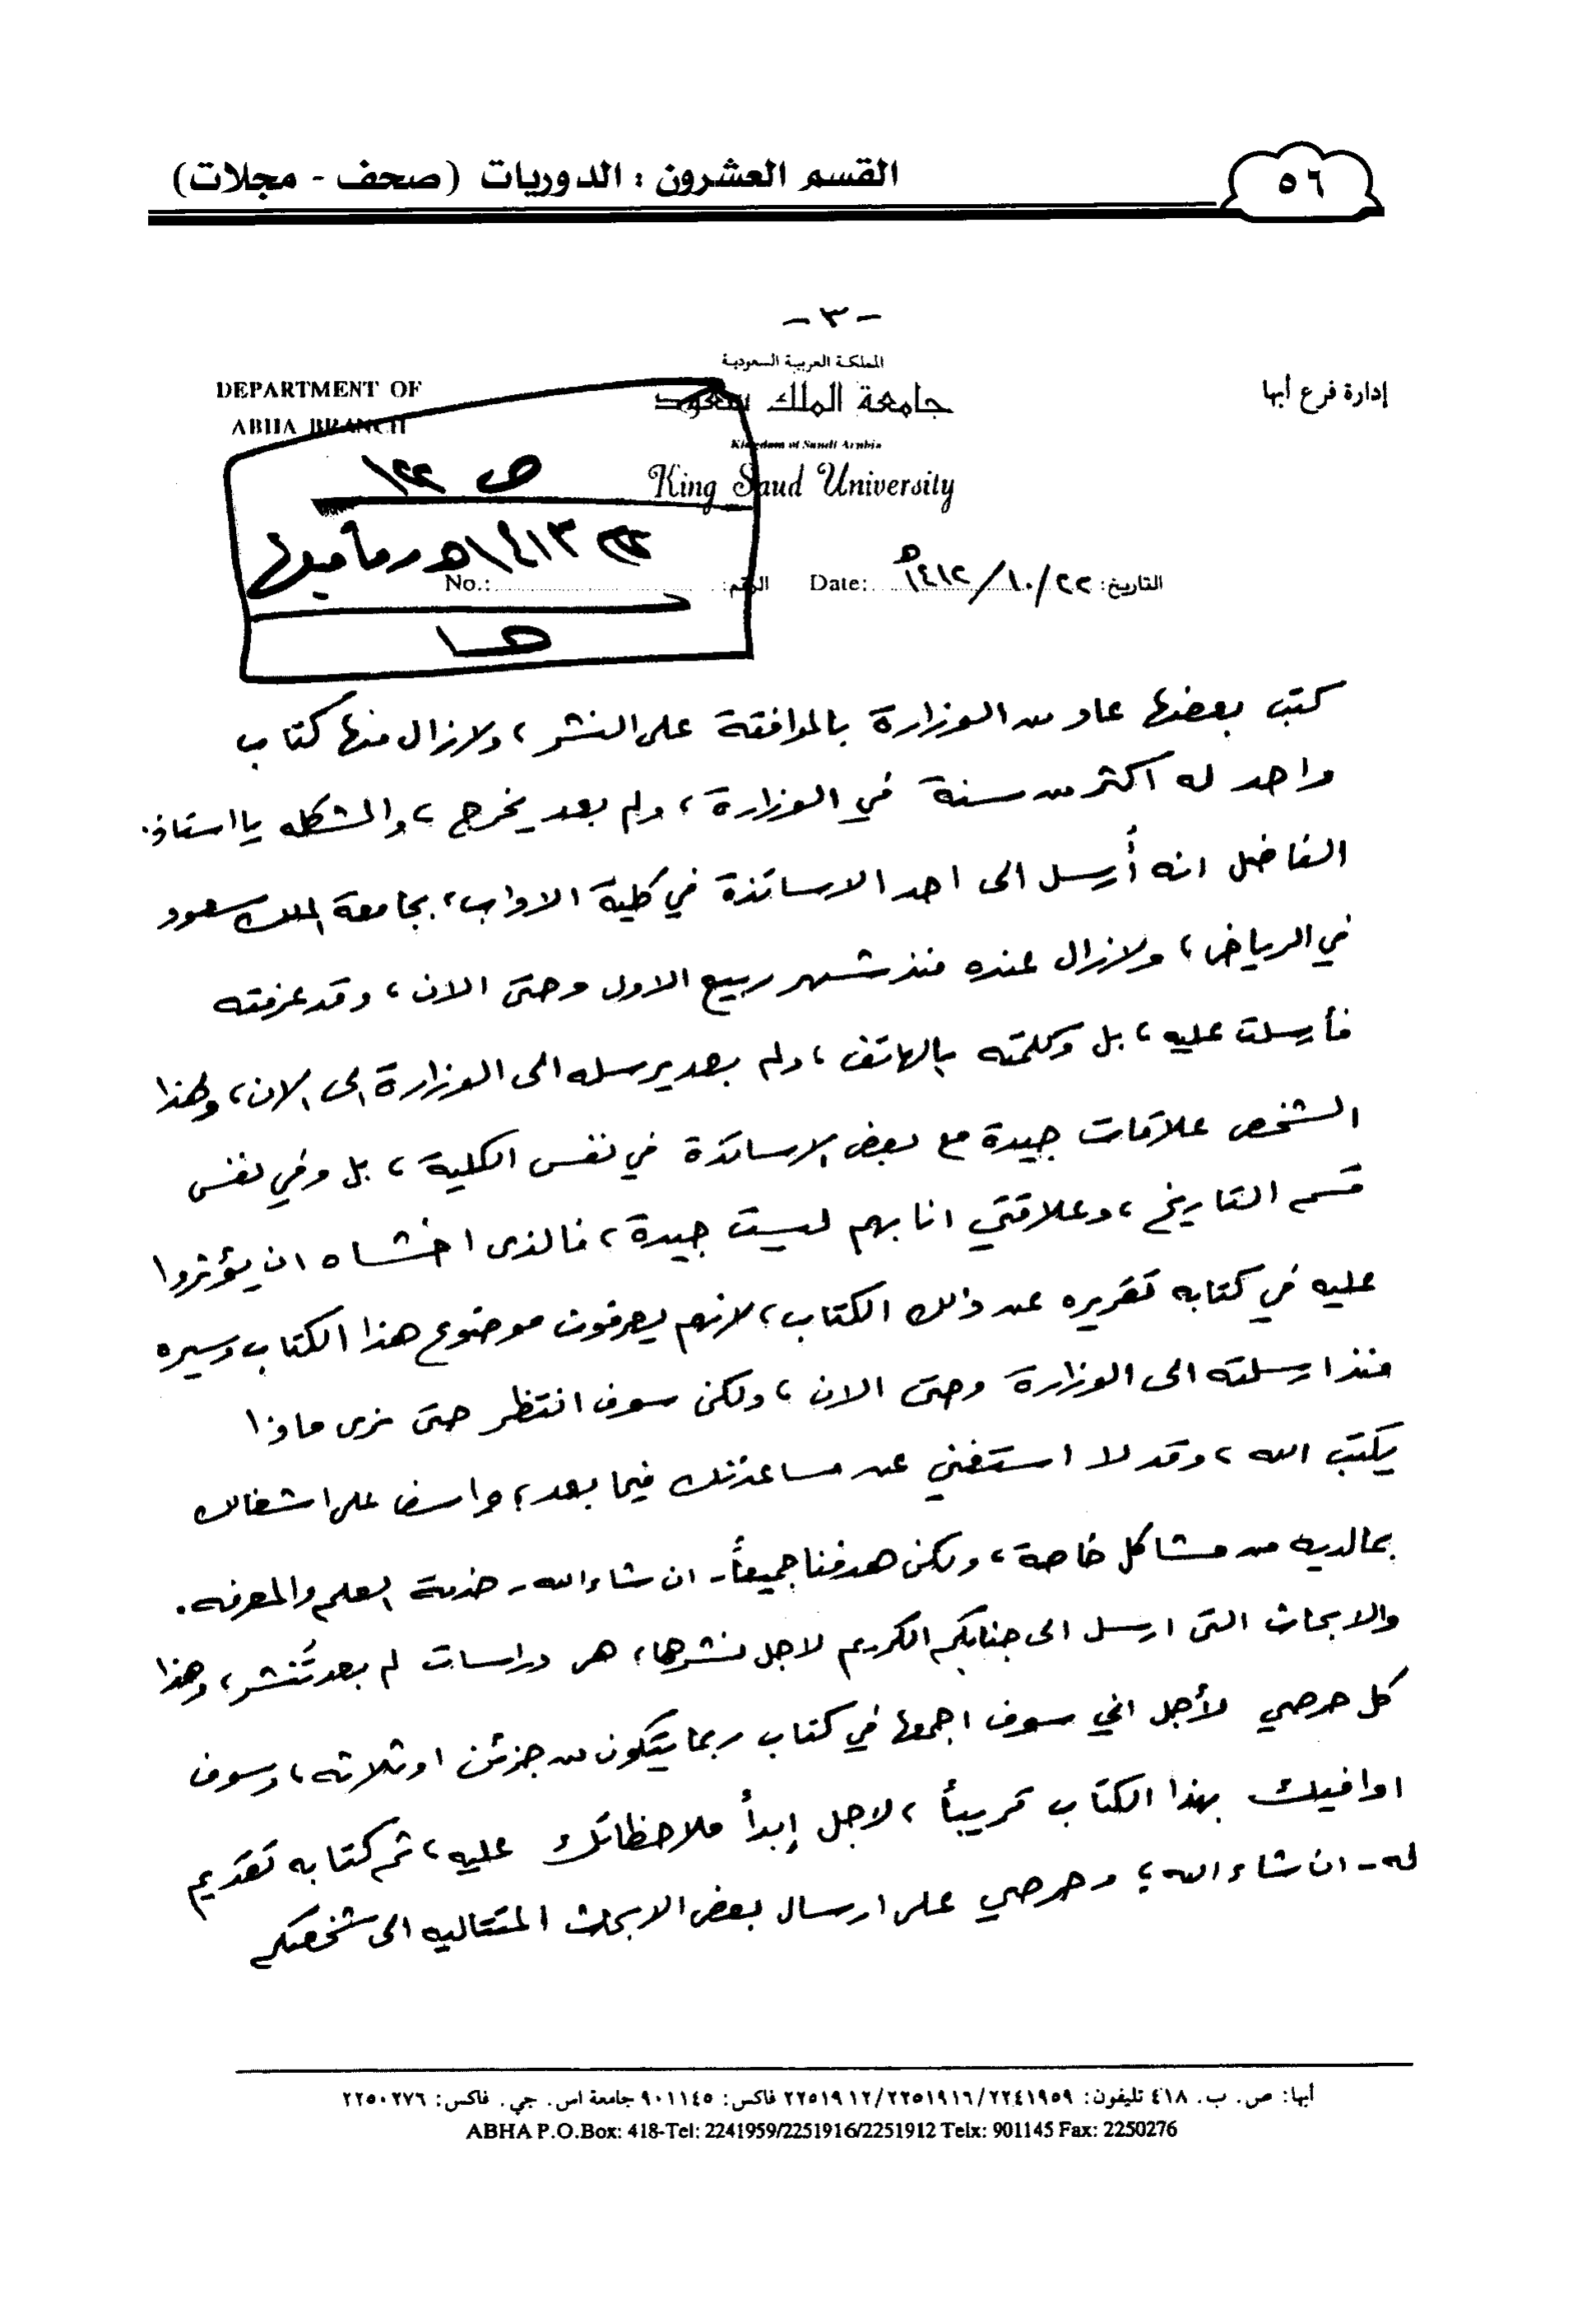 ٥٦
القسم العشرون : الدوريات (صحف - مجلات)
- ٣ -
المملكة العربية السعودية
إدارة فرع أبها
جامعة الملك سعود
DEPARTMENT OF
ABHA BRANCH
Kingdom of Saudi Arabia
King Saud University
ص ١٢٢
١٤١٣هـ وما
هـا
التاريخ: ٢٢/١٠/١٤١٢هـ Date: الرقم: No.:
كتب بعضها عاد من الوزارة بالموافقة على النشر، ولازال منها كتاب
واحد له اكثر من سنة في الوزارة، ولم بعد يخرج، والمشكله يا استاذ
الفاضل انه أُرسل الى احد الاساتذة في كلية الاداب، بجامعة الملك سعود
في الرياض، ولازال عنده منذ شهر ربيع الاول وحتى الان، وقد عرفته
فأرسلت عليه، بل وكلمته بالهاتف، ولم بعد يرسله الى الوزارة الى الان، ولهذا
الشخص علاقات جيدة مع بعض الاساتذة في نفس الكلية، بل وفي نفس
قسم التاريخ، وعلاقتي انا بهم ليست جيدة، فالذى اخشاه ان يؤثروا
عليه في كتابه تقريره عن ذلك الكتاب، لانهم يعرفون موضوع هذا الكتاب وسيره
منذ ارسلته الى الوزارة وحتى الان، ولكن سوف انتظر حتى نرى ماذا
يكتب الله، وقد لا استغني عن مساعدتك فيما بعد، واسف على اشغالك
بمالديه من مشاكل خاصة، ولكن هدفنا جميعاً - ان شاء الله - خدمة العلم والمعرفه.
والابحاث التى ارسل الى جنابكم الكريم لاجل نشرها، هى دراسات لم بعد تُنشر، وهذا
كل حرصي لأجل اني سوف اجمعها في كتاب ربما يتكون من جزئين او ثلاثه، وسوف
اوافيك بهذا الكتاب قريباً، لاجل إبدأ ملاحظاتك عليه، ثم كتابه تقديم
له - ان شاء الله، وحرصي على ارسال بعض الابحاث المتتاليه الى شخصكم
أبها: ص. ب. ٤١٨ تليفون: ٢٢٤١٩٥٩/٢٢٥١٩١٦/٢٢٥١٩١٢ فاكس: ٩٠١١٤٥ جامعة اس. جي. فاكس: ٢٢٥٠٢٧٦
ABHA P.O.Box: 418-Tel: 2241959/2251916/2251912 Telx: 901145 Fax: 2250276